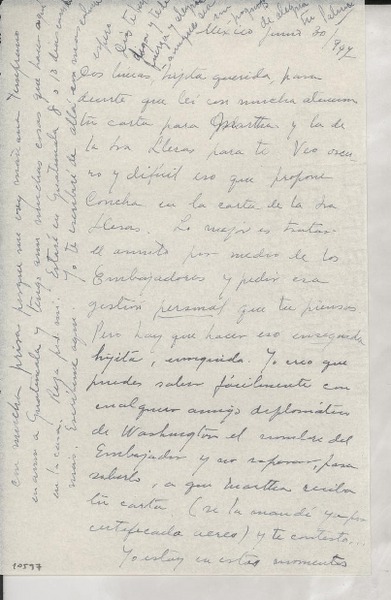 México junio 30, 1947
Dos líneas, hijita querida, para
decirte que leí con mucha atención
tu carta para Martha y la de
la Sra Lleras para ti. Veo oscu-
ro y difícil eso que propone
Concha en la carta de la Sra
Lleras. Lo mejor es tratar
el asunto por medio de los
Embajadores y pedir esa
gestión personal que tu piensas
Pero hay que hacer eso enseguida
hijita, enseguida. Yo creo que
puedes saber fácilmente con
cualquier amigo diplomático
de Washington el nombre del
Embajador y no esperar, para
saberlo, a que Martha reciba
tu carta (se la mandé ya por
certificado aéreo) y te conteste...
Yo estoy en estos momentos
con mucha prisa porque me voy mañana temprano
en avión a Guatemala y tengo aun muchas cosas que hacer aquí
en la casa. Reza por mí. Estaré en Guatemala 8 o 10 días
más. Escríbeme aquí. Yo te escribiré de allá
Dios te
tu
10597